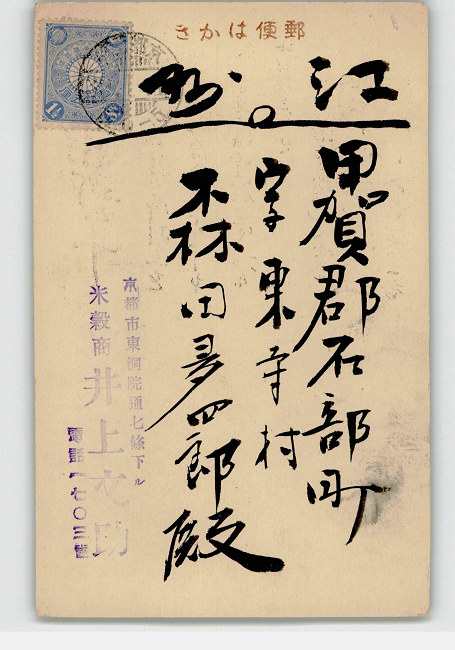 郵便はかき
江州
甲賀郡石部町
字東寺村
森田多四郎殿
京都市東洞院通七條下ル
米穀商 井上文助
電話一七〇三番